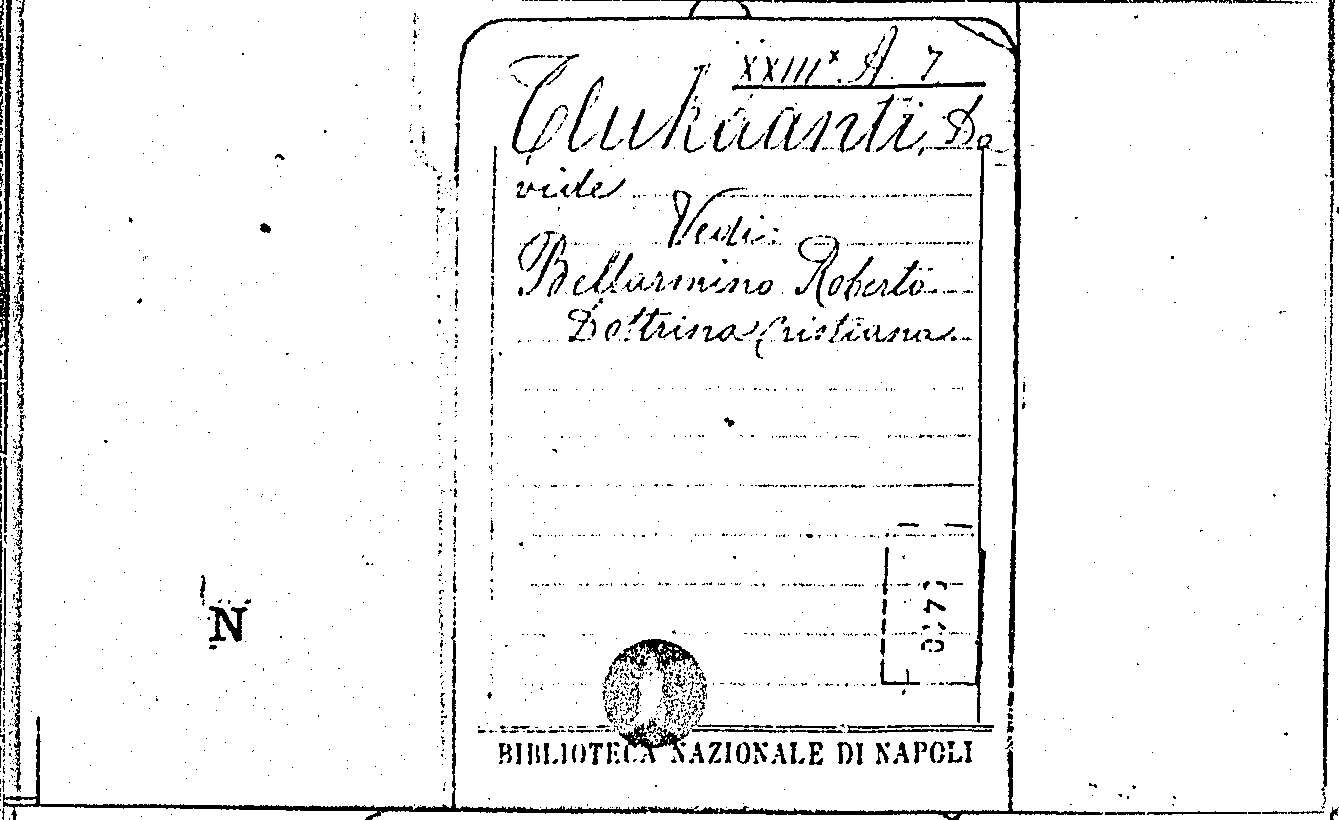 XXIII* A. 7
Elukaanti, Da
vide
Vedi:
Bellarmino Roberto
Dottrina Cristiana
N
BIBLIOTECA NAZIONALE DI NAPOLI